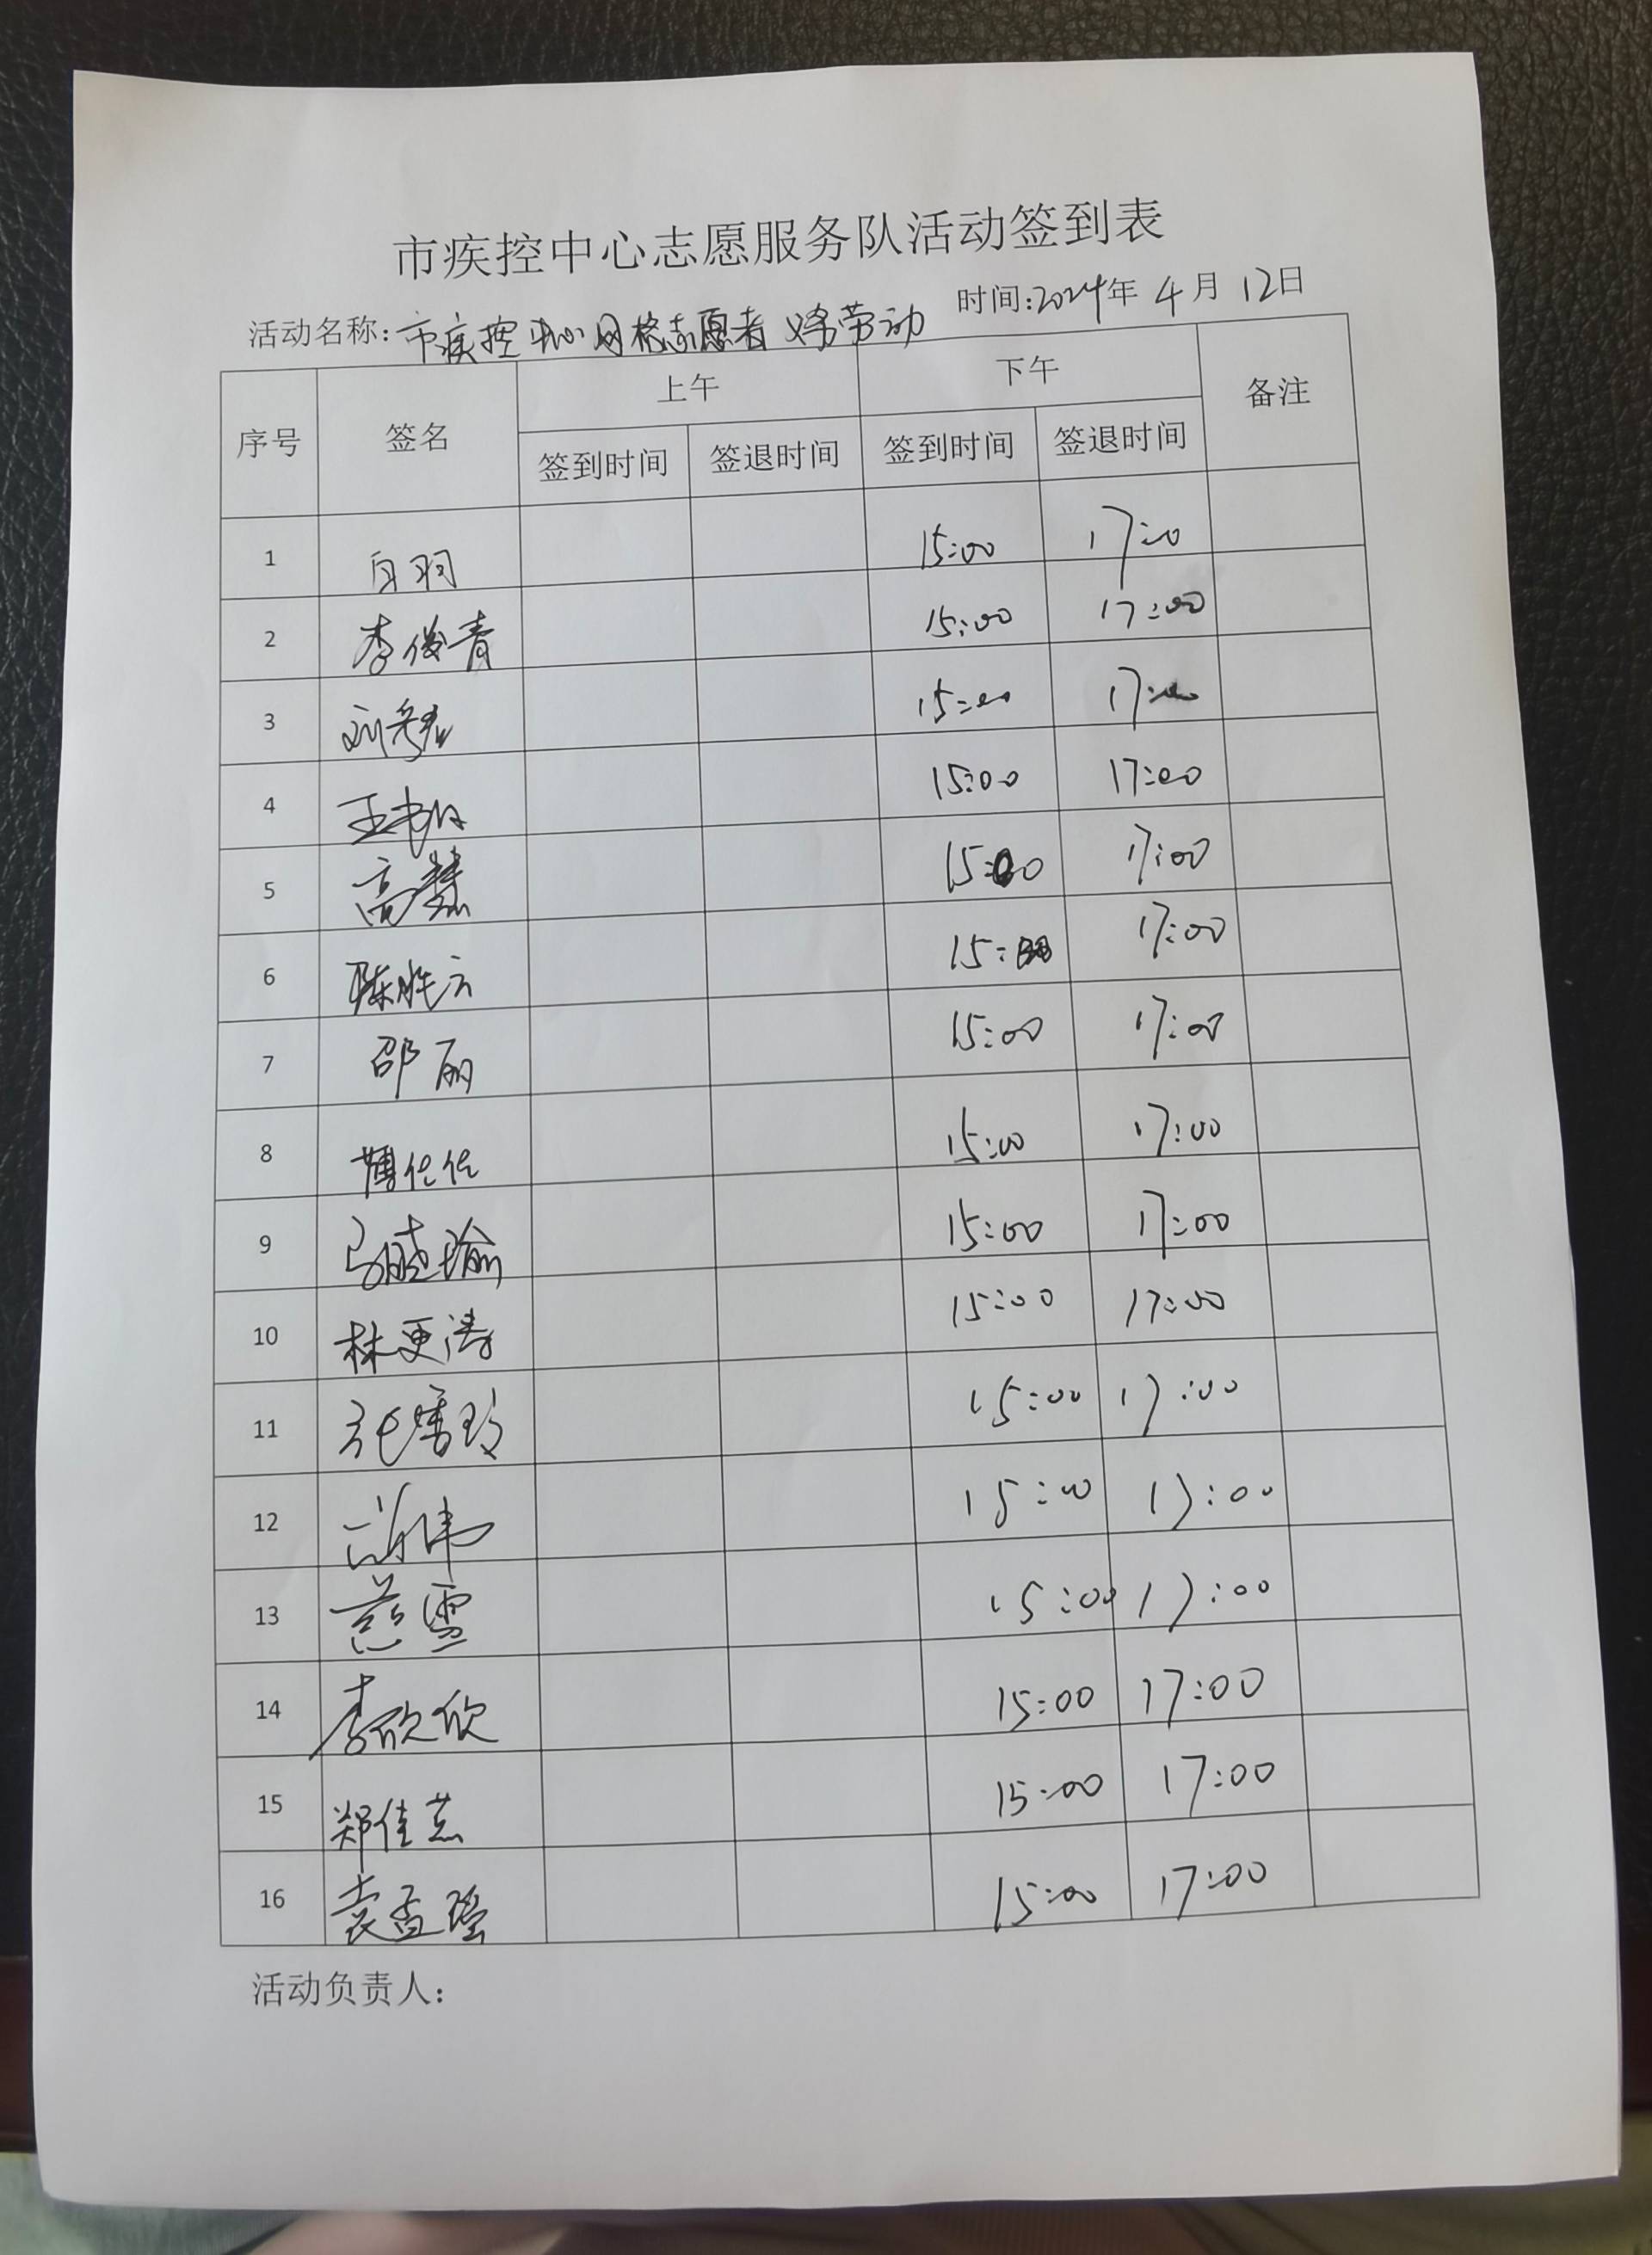 市疾控中心志愿服务队活动签到表
活动名称:市疾控中心网格志愿者义务劳动 时间:2024年4月12日
序号 签名 上午 下午 备注
签到时间 签退时间 签到时间 签退时间
1 白羽 15:00 17:00
2 李俊青 15:00 17:00
3 刘 15:00 17:00
4 王 15:00 17:00
5 高慧 15:00 17:00
6 陈胜云 15:00 17:00
7 邵丽 15:00 17:00
8 15:00 17:00
9 马晓瑜 15:00 17:00
10 林更涛 15:00 17:00
11 张雪玲 15:00 17:00
12 15:00 17:00
13 慈雪 15:00 17:00
14 李欣欣 15:00 17:00
15 郑佳慧 15:00 17:00
16 袁孟莹 15:00 17:00
活动负责人: